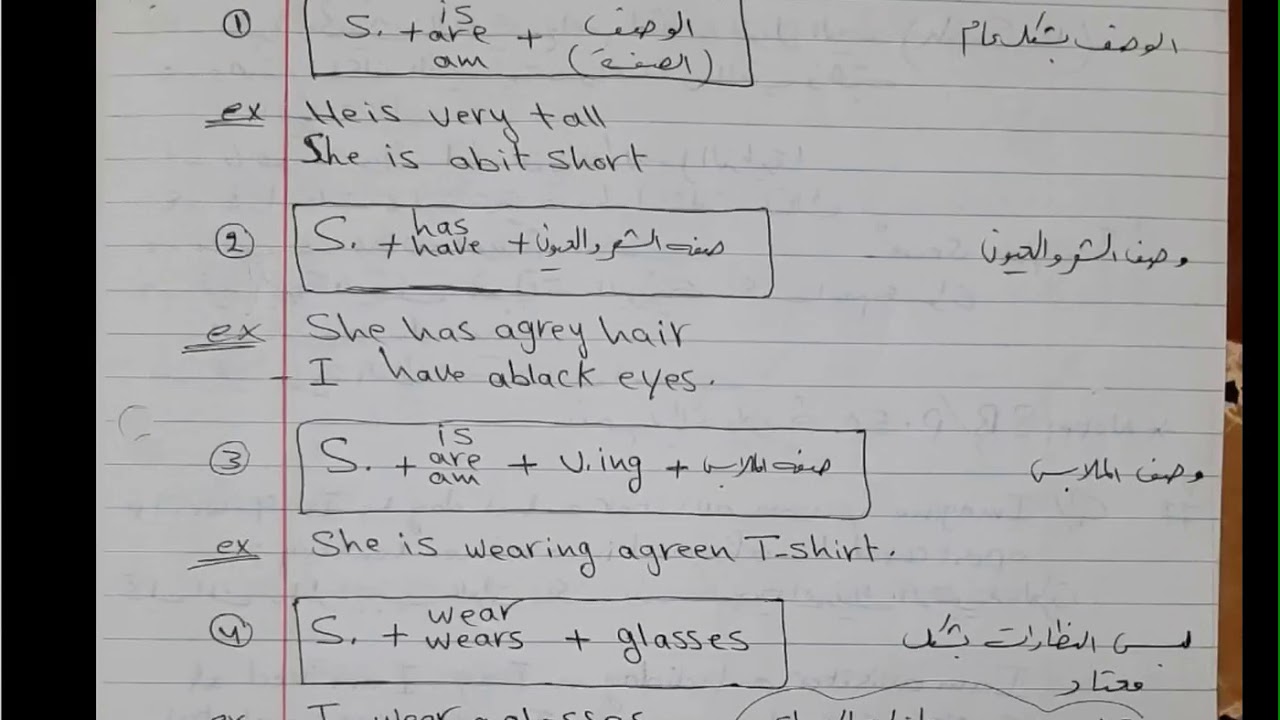 ① S. + is are am + الوصف (الصفة) الوصف بشكل عام
ex He is very tall
She is abit short
② S. + has have + صفه الشعر والعيون وصف الشعر والعيون
ex She has agrey hair
I have ablack eyes.
③ S. + is are am + V.ing + صفه الملابس وصف الملابس
ex She is wearing agreen T-shirt.
④ S. + wear wears + glasses لبس النظارات بشكل
معتاد
ex I wear glasses